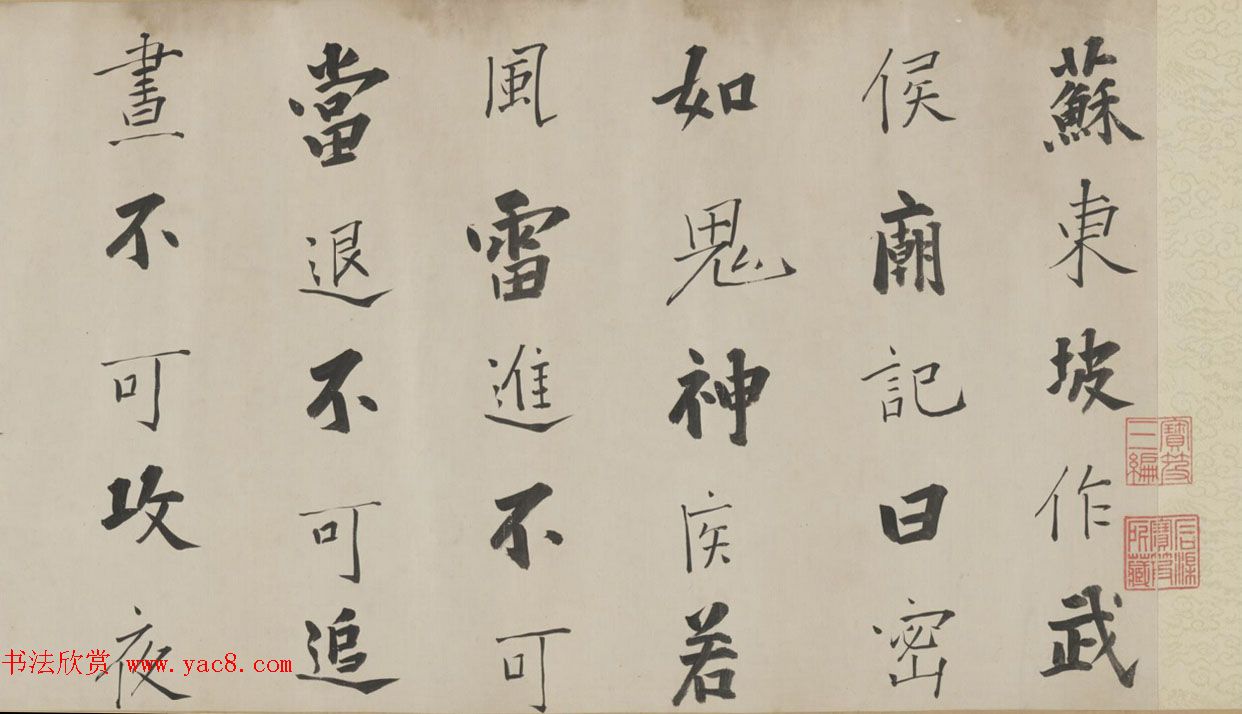 蘇東坡作武
侯廟記曰密
如鬼神疾若
風雷進不可
當退不可追
晝不可攻夜
寶笈三編
石渠寶笈所藏
书法欣赏 www.yac8.com